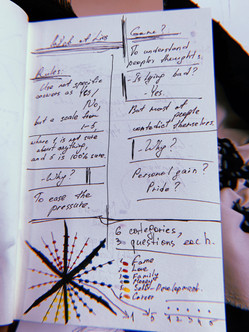 Rules:
Use not specific
answers as Yes/
No,
but a scale from
1-5,
where 1 is not sure
about anything,
and 5 is 100% sure.
- Why?
To ease the
pressure.
Game?
To understand
people thoughts.
- Is lying bad?
- Yes.
But most of
people
contradict themselves.
- Why?
Personal gain?
Pride?
6 categories,
3 questions each.
1. Fame
2. Love
3. Family
4. Money
5. Self-Development
6. Career